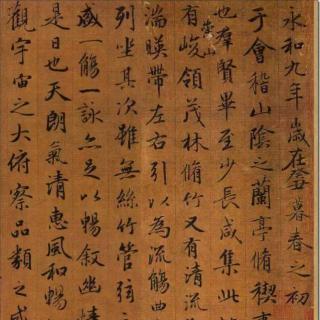 永和九年歲在癸暮春之初
于會稽山陰之蘭亭脩稧事
也羣賢畢至少長咸集此地
有峻領茂林脩竹又有清流
崇山
湍暎帶左右引以為流觴曲
列坐其次雖無絲竹管弦之
盛一觴一詠亦足以暢敘幽情
是日也天朗氣清惠風和暢
觀宇宙之大俯察品類之盛